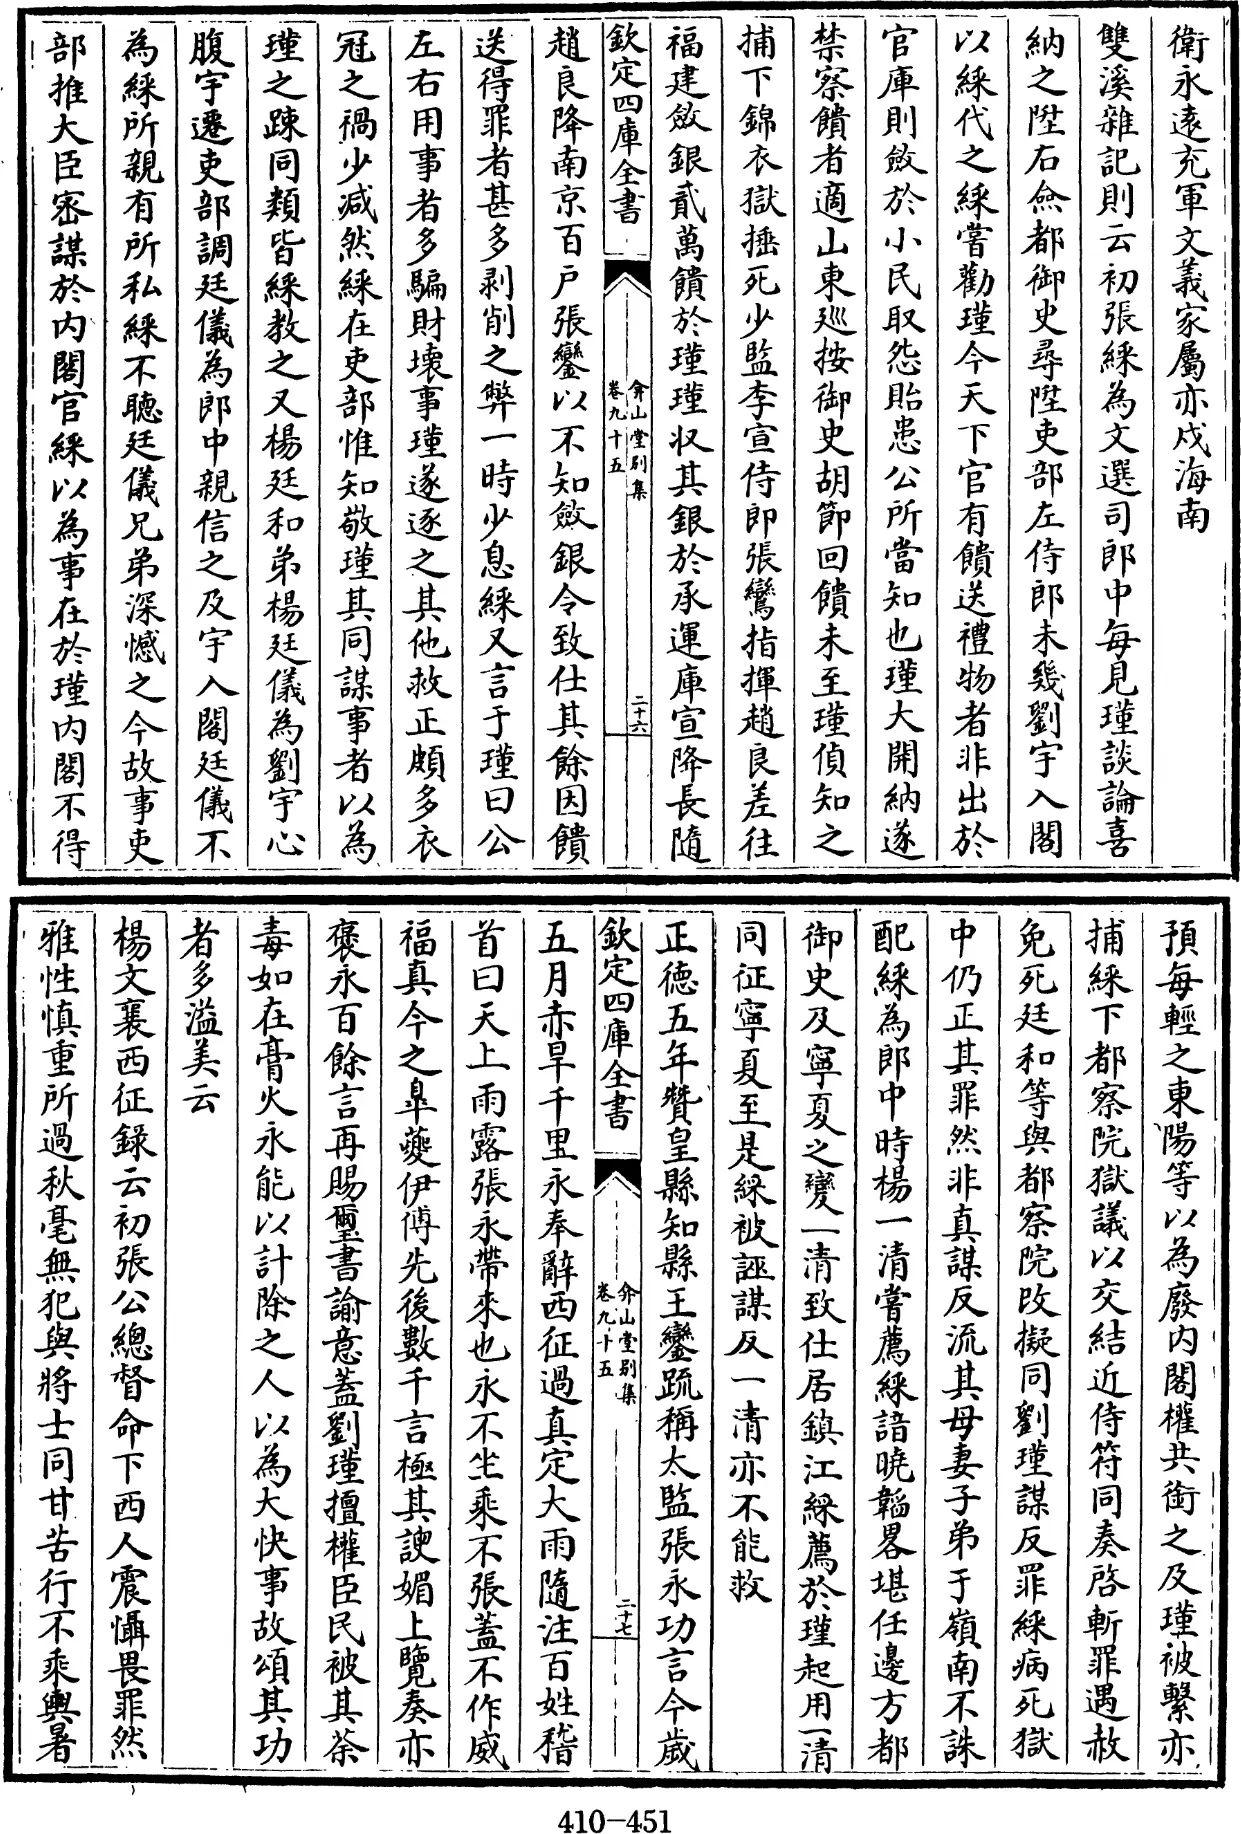 衛永遠充軍文義家屬亦戍海南
雙溪雜記則云初張綵為文選司郎中每見瑾談論喜
納之陞右僉都御史尋陞吏部左侍郎未幾劉宇入閣
以綵代之綵嘗勸瑾今天下官有饋送禮物者非出於
官庫則斂於小民取怨貽患公所當知也瑾大開納遂
禁察饋者適山東廵按御史胡節回饋未至瑾偵知之
捕下錦衣獄捶死少監李宣侍郎張鸞指揮趙良差往
福建斂銀貳萬饋於瑾瑾収其銀於承運庫宣降長隨
欽定四庫全書
弇山堂别集
卷九十五
二十六
趙良降南京百戶張鑾以不知斂銀令致仕其餘因饋
送得罪者甚多剥削之弊一時少息綵又言于瑾曰公
左右用事者多騙財壊事瑾遂逐之其他救正頗多衣
冠之禍少减然綵在吏部惟知敬瑾其同謀事者以為
瑾之踈同類皆綵教之又楊廷和弟楊廷儀為劉宇心
腹宇遷吏部調廷儀為郎中親信之及宇入閣廷儀不
為綵所親有所私綵不聽廷儀兄弟深憾之今故事吏
部推大臣宻謀於内閣官綵以為事在於瑾内閣不得
預每輕之東陽等以為廢内閣權共銜之及瑾被繫亦
捕綵下都察院獄議以交結近侍符同奏啓斬罪遇赦
免死廷和等與都察院改擬同劉瑾謀反罪綵病死獄
中仍正其罪然非真謀反流其母妻子弟于嶺南不誅
配綵為郎中時楊一清嘗薦綵諳曉韜畧堪任邊方都
御史及寧夏之變一清致仕居鎮江綵薦於瑾起用一清
同征寧夏至是綵被誣謀反一清亦不能救
正徳五年贊皇縣知縣王鑾疏稱太監張永功言今歲
欽定四庫全書
弇山堂别集
卷九十五
二十七
五月赤旱千里永奉辭西征過真定大雨隨注百姓稽
首曰天上雨露張永帶來也永不坐乘不張蓋不作威
福真今之臯夔伊傅先後數千言極其諛媚上覽奏亦
褒永百餘言再賜璽書諭意蓋劉瑾擅權臣民被其荼
毒如在膏火永能以計除之人以為大快事故頌其功
者多溢美云
楊文襄西征録云初張公總督命下西人震懾畏罪然
雅性慎重所過秋毫無犯與將士同甘苦行不乘輿暑
410-451